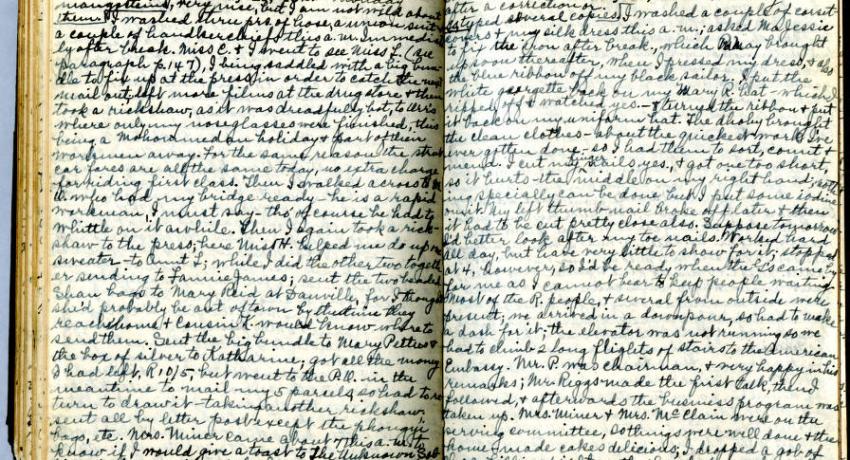 mangosteens, very nice, but I am
them. I washed three prs of hose, a union suit &
a couple of handkerchiefs this a.m. immediate-
ly after break. Miss C. & I went to see Miss L. (see
paragraph p. 147), I being saddled with a big bun-
dle to fix up at the press in order to catch the next
mail out; left more films at the drug store & then
took a rickshaw, as it was dreadfully hot, to Uris
where only my noseglasses were finished, this
being a Mohammedan holiday & part of their
workmen away. For the same reason the street
car fares are all the same today, no extra charge
for riding first class. Then I walked across to
W. who had my bridge ready—he is a rapid
workman, I must say—tho' of course he had to
whittle on it awhile. Then I again took a rick-
shaw to the press; here Miss H. helped me do up my
sweater—to Aunt L; while I did the other two togeth-
er sending to Fannie James; sent the two beaded
Shan bags to Mary Reid at Danville, for I thought
she'd probably be out of town by the time they
reach home & Cousin K. would know where to
send them. Sent the big bundle to Mary Pettus &
the box of silver to Katharine; got all the money
I had left, R 10/5, but went to the P.O. in the
meantime to mail my 5 parcels, so had to re-
turn to draw it—taking another rickshaw;
sent all by letter post except the phongyi
bags, etc. Mrs. Miner came about this a.m. to
know if I would give a toast to The Unknown
after a correction or
retyped several copies. I washed a couple of corset
covers & my silk dress this a.m.; asked Ma Jessie
to fix the iron after break., which Ba May brought
up soon thereafter, when I pressed my dress, & also
the blue ribbon off my black sailor; I put the
white georgette back on my Mary R. hat—which I
ripped off & watched yes.—& turned the ribbon & put
it back on my uniform hat. The dhoby brought
the clean clothes—about the quickest work I've
ever gotten done—so I had them to sort, count &
mend. I cut my finger nails yes., & got one too short,
so it hurts—the middle on my right hand; noth-
ing specially can be done but I put some iodine
on it. My left thumb-nail broke off later & then
it had to be cut pretty close also. Suppose tomorrow
I'd better look after my toe nails. Worked hard
all day, but have very little to show for it; stopped
at 4, however, so I'd be ready when the L's came by
for me as I cannot bear to keep people waiting.
Most of the R. people, & several from outside were
present; we arrived in a downpour, so had to make
a dash for it; the elevator was not running so we
had to climb 2 long flights of stairs to the American
Embassy. Mr. P. was chairman, & very happy in his
remarks; Mr. Riggs made the first talk, then I
followed, & afterwards the business program was
taken up. Mrs. Miner & Mrs. McClain were on the
serving committee, so things were well done & the
home-made cakes delicious; I dropped a gob of